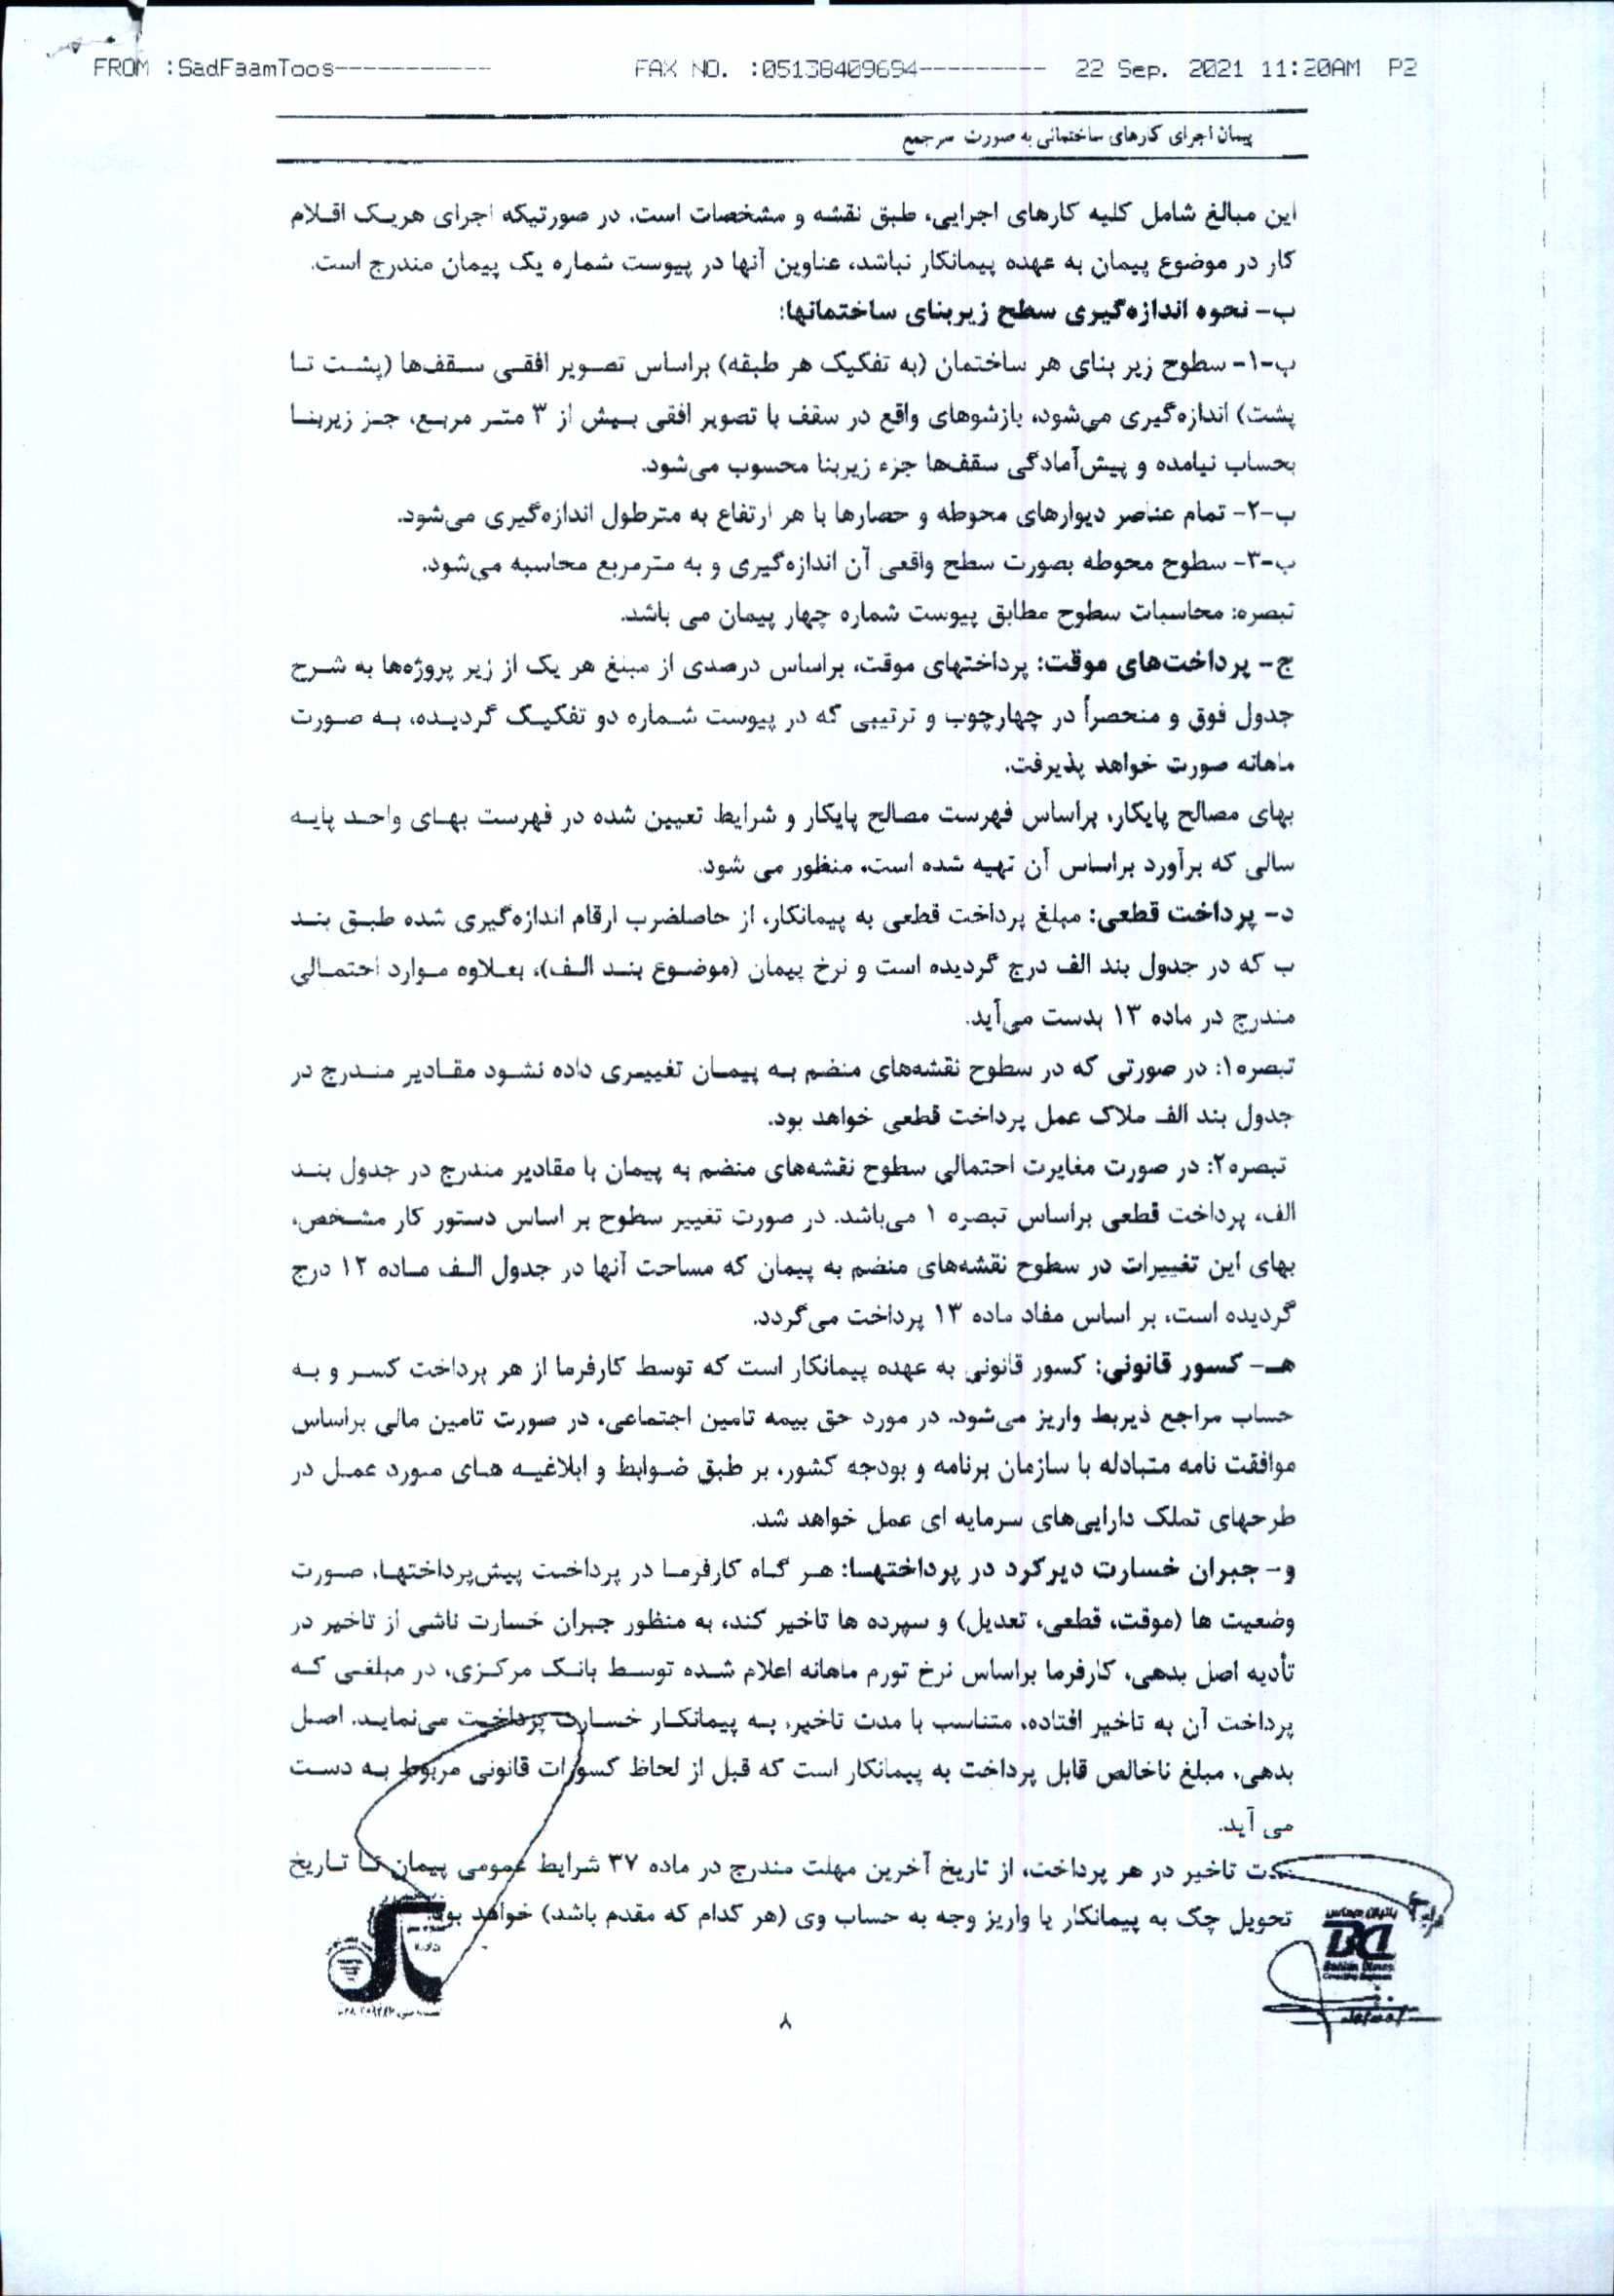 FROM :SadFaamToos----------- FAX NO. :05138409694--------- 22 Sep. 2021 11:20AM P2
پیمان اجرای کارهای ساختمانی به صورت سرجمع
این مبالغ شامل کلیه کارهای اجرایی، طبق نقشه و مشخصات است. در صورتیکه اجرای هریک اقلام
کار در موضوع پیمان به عهده پیمانکار نباشد، عناوین آنها در پیوست شماره یک پیمان مندرج است.
ب- نحوه اندازه‌گیری سطح زیربنای ساختمانها:
ب-۱- سطوح زیر بنای هر ساختمان (به تفکیک هر طبقه) براساس تصویر افقی سقف‌ها (پشت تا
پشت) اندازه‌گیری می‌شود، بازشوهای واقع در سقف با تصویر افقی بیش از ۳ متر مربع، جز زیربنا
بحساب نیامده و پیش‌آمادگی سقف‌ها جزء زیربنا محسوب می‌شود.
ب-۲- تمام عناصر دیوارهای محوطه و حصارها با هر ارتفاع به مترطول اندازه‌گیری می‌شود.
ب-۳- سطوح محوطه بصورت سطح واقعی آن اندازه‌گیری و به مترمربع محاسبه می‌شود.
تبصره: محاسبات سطوح مطابق پیوست شماره چهار پیمان می باشد.
ج- پرداخت‌های موقت: پرداختهای موقت، براساس درصدی از مبلغ هر یک از زیر پروژه‌ها به شرح
جدول فوق و منحصراً در چهارچوب و ترتیبی که در پیوست شماره دو تفکیک گردیده، به صورت
ماهانه صورت خواهد پذیرفت.
بهای مصالح پایکار، براساس فهرست مصالح پایکار و شرایط تعیین شده در فهرست بهای واحد پایه
سالی که برآورد براساس آن تهیه شده است، منظور می شود.
د- پرداخت قطعی: مبلغ پرداخت قطعی به پیمانکار، از حاصلضرب ارقام اندازه‌گیری شده طبق بند
ب که در جدول بند الف درج گردیده است و نرخ پیمان (موضوع بند الف)، بعلاوه موارد احتمالی
مندرج در ماده ۱۳ بدست می‌آید.
تبصره۱: در صورتی که در سطوح نقشه‌های منضم به پیمان تغییری داده نشود مقادیر مندرج در
جدول بند الف ملاک عمل پرداخت قطعی خواهد بود.
تبصره۲: در صورت مغایرت احتمالی سطوح نقشه‌های منضم به پیمان با مقادیر مندرج در جدول بند
الف، پرداخت قطعی براساس تبصره ۱ می‌باشد. در صورت تغییر سطوح بر اساس دستور کار مشخص،
بهای این تغییرات در سطوح نقشه‌های منضم به پیمان که مساحت آنها در جدول الف ماده ۱۲ درج
گردیده است، بر اساس مفاد ماده ۱۳ پرداخت می‌گردد.
هـ- کسور قانونی: کسور قانونی به عهده پیمانکار است که توسط کارفرما از هر پرداخت کسر و به
حساب مراجع ذیربط واریز می‌شود. در مورد حق بیمه تامین اجتماعی، در صورت تامین مالی براساس
موافقت نامه متبادله با سازمان برنامه و بودجه کشور، بر طبق ضوابط و ابلاغیه های مورد عمل در
طرحهای تملک دارایی‌های سرمایه ای عمل خواهد شد.
و- جبران خسارت دیرکرد در پرداختها: هر گاه کارفرما در پرداخت پیش‌پرداختها، صورت
وضعیت ها (موقت، قطعی، تعدیل) و سپرده ها تاخیر کند، به منظور جبران خسارت ناشی از تاخیر در
تأدیه اصل بدهی، کارفرما براساس نرخ تورم ماهانه اعلام شده توسط بانک مرکزی، در مبلغی که
پرداخت آن به تاخیر افتاده، متناسب با مدت تاخیر، به پیمانکار خسارت پرداخت می‌نماید. اصل
بدهی، مبلغ ناخالص قابل پرداخت به پیمانکار است که قبل از لحاظ کسورات قانونی مربوط به دست
می آید.
مدت تاخیر در هر پرداخت، از تاریخ آخرین مهلت مندرج در ماده ۳۷ شرایط عمومی پیمان تا تاریخ
تحویل چک به پیمانکار یا واریز وجه به حساب وی (هر کدام که مقدم باشد) خواهد بود.
۸